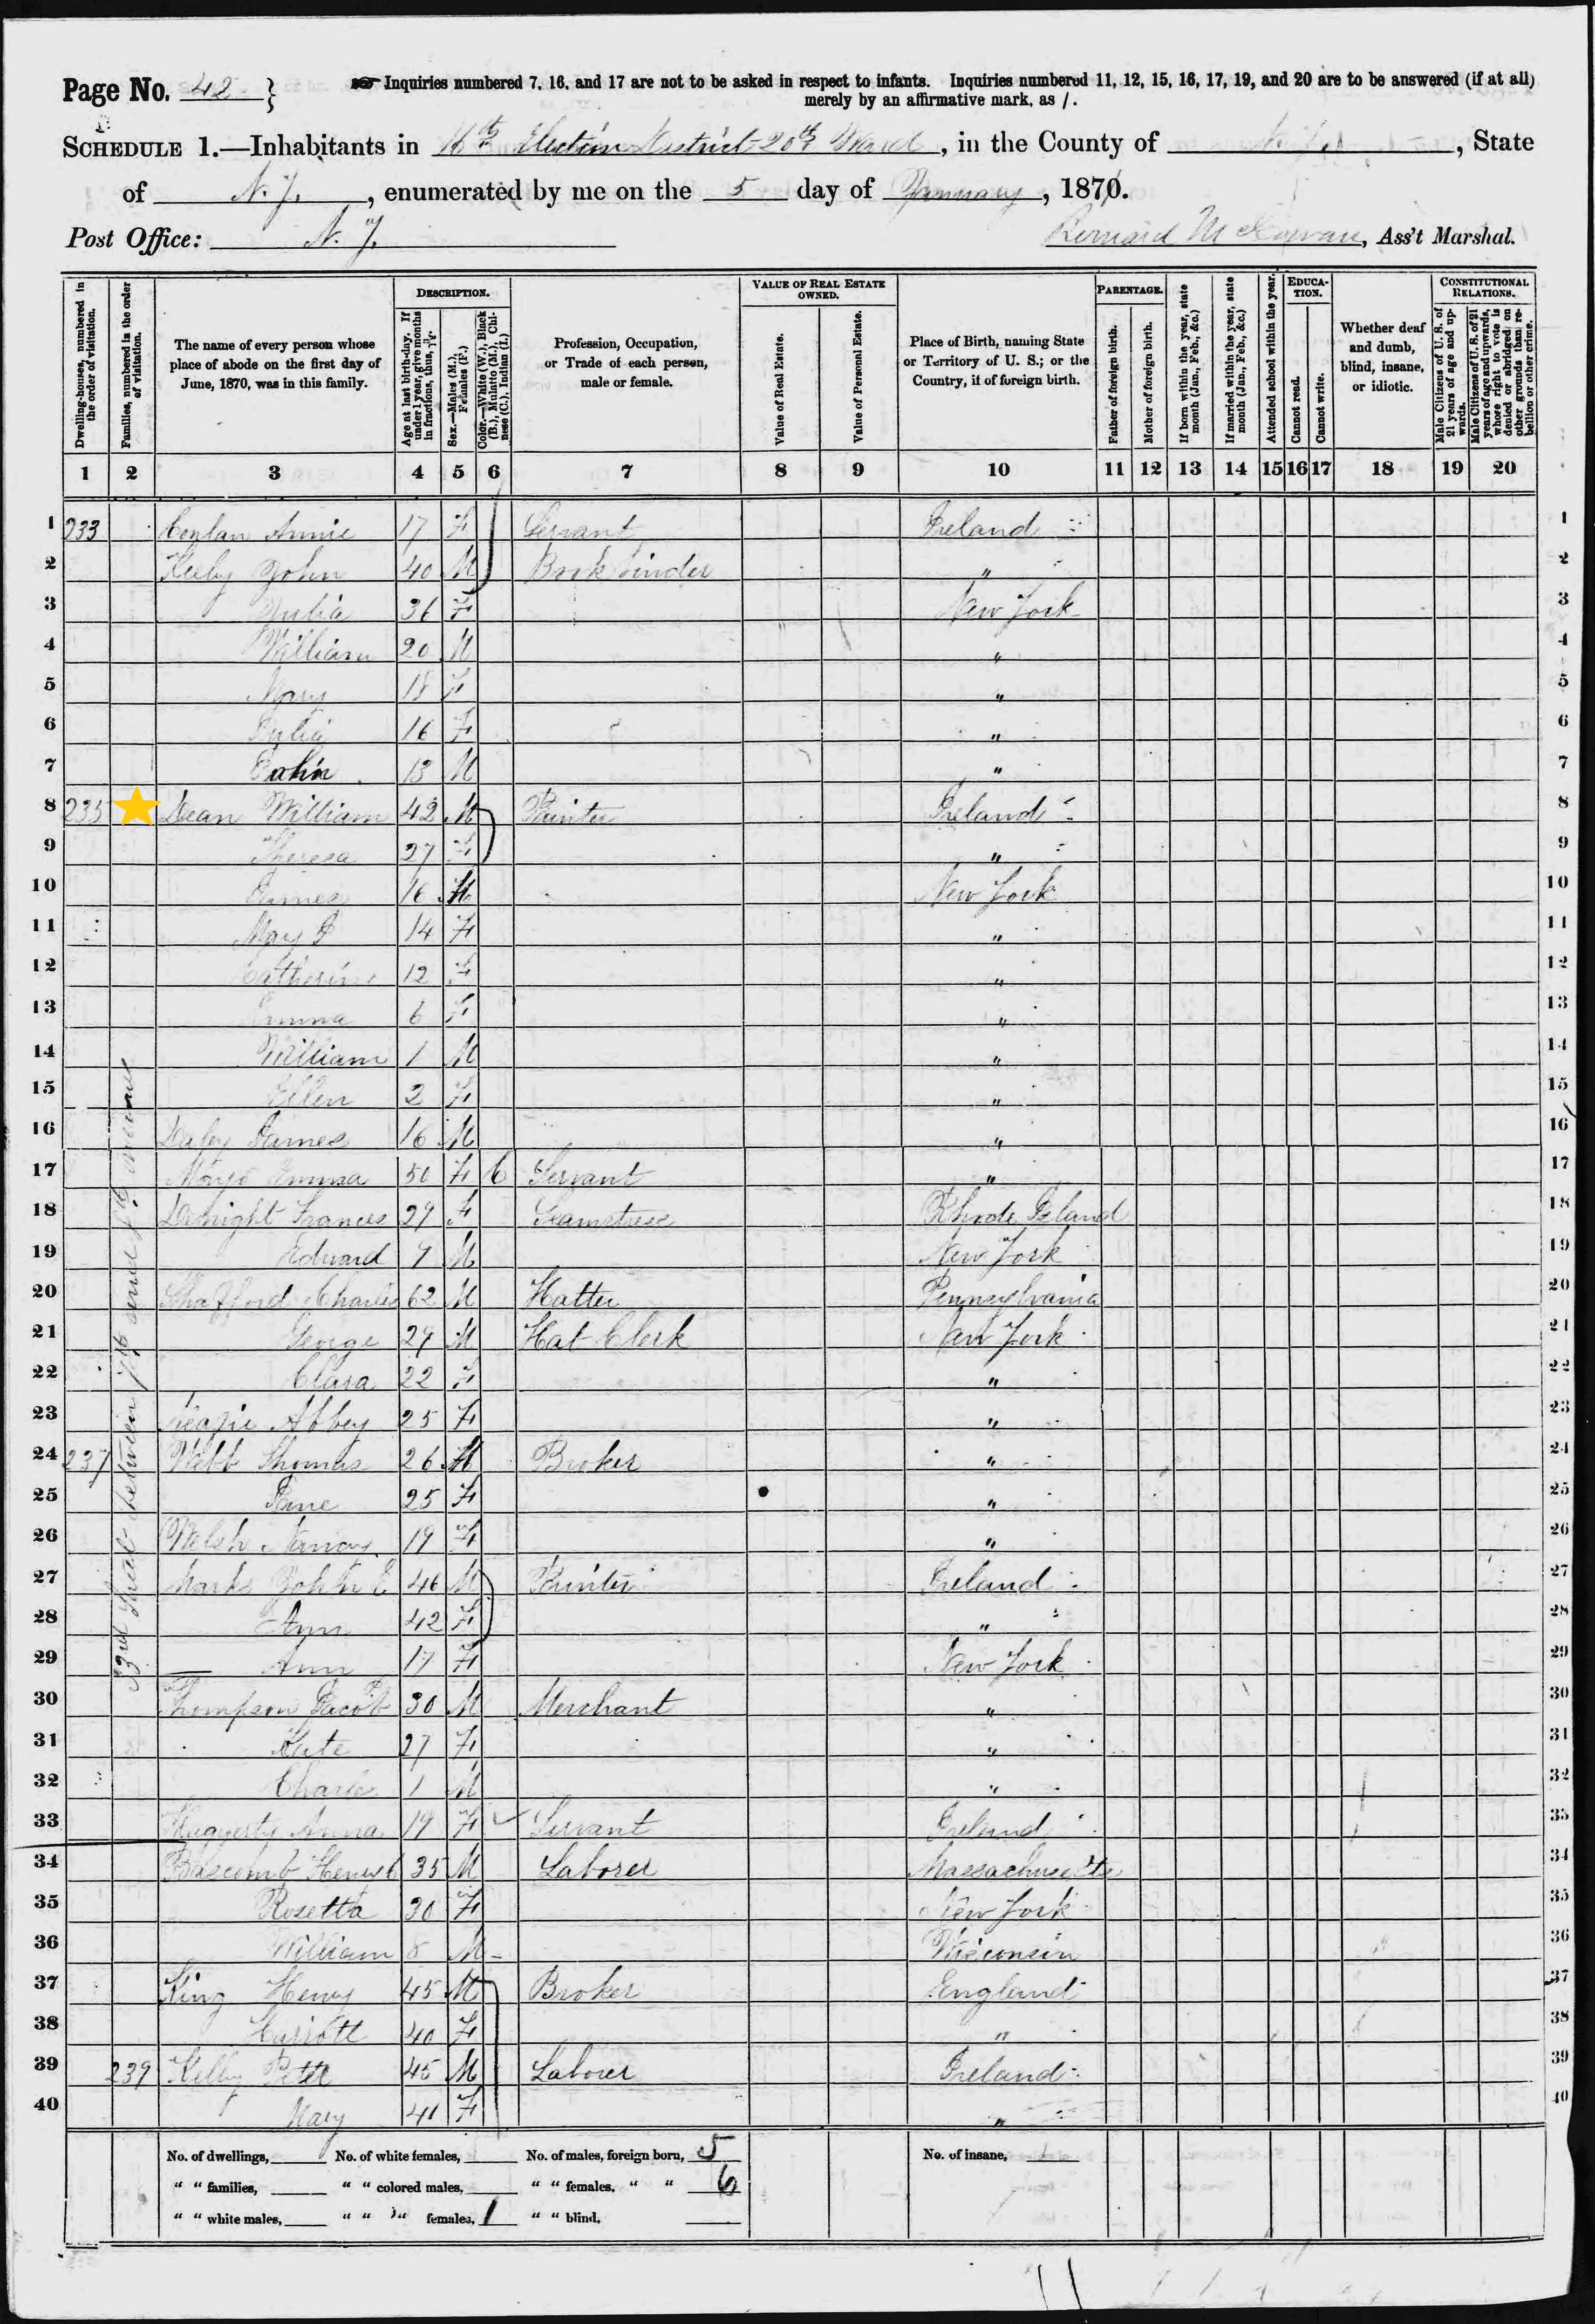 Page No. 42 }
☞ Inquiries numbered 7, 16, and 17 are not to be asked in respect to infants. Inquiries numbered 11, 12, 15, 16, 17, 19, and 20 are to be answered (if at all)
merely by an affirmative mark, as /.
SCHEDULE 1.—Inhabitants in 16th Election District 20th Ward, in the County of N.Y., State
of N.Y., enumerated by me on the 5 day of January, 1871.
Post Office: N.Y. Bernard, Ass't Marshal.
Dwelling-houses, numbered in the order of visitation.
Families, numbered in the order of visitation.
The name of every person whose place of abode on the first day of June, 1870, was in this family.
DESCRIPTION.
Age at last birth-day. If under 1 year, give months in fractions, thus, 3/12.
Sex.—Males (M.), Females (F.)
Color.—White (W.), Black (B.), Mulatto (M.), Chinese (C.), Indian (I.)
Profession, Occupation, or Trade of each person, male or female.
VALUE OF REAL ESTATE OWNED.
Value of Real Estate.
Value of Personal Estate.
Place of Birth, naming State or Territory of U. S.; or the Country, if of foreign birth.
PARENTAGE.
Father of foreign birth.
Mother of foreign birth.
If born within the year, state month (Jan., Feb., &c.)
If married within the year, state month (Jan., Feb., &c.)
Attended school within the year.
EDUCATION.
Cannot read.
Cannot write.
Whether deaf and dumb, blind, insane, or idiotic.
CONSTITUTIONAL RELATIONS.
Male Citizens of U. S. of 21 years of age and upwards.
Male Citizens of U. S. of 21 years of age and upwards, whose right to vote is denied or abridged on other grounds than rebellion or other crime.
1 2 3 4 5 6 7 8 9 10 11 12 13 14 15 16 17 18 19 20
1 233 Conlan Annie 17 F Servant Ireland 1
2 Kelly John 40 M Book binder " 2
3 Julia 36 F New York 3
4 William 20 M " 4
5 Mary 18 F " 5
6 Julia 16 F " 6
7 John 13 M " 7
8 235 Dean William 42 M Painter Ireland 8
9 Theresa 27 F " 9
10 James 16 M New York 10
11 Mary J 14 F " 11
12 Catherine 12 F " 12
13 Emma 6 F " 13
14 William 1 M " 14
15 Ellen 2 F " 15
16 Daley James 16 M " 16
17 Emma 50 F Servant " 17
18 Frances 29 F Seamstress Rhode Island 18
19 Edward 7 M New York 19
20 Charles 62 M Hatter Pennsylvania 20
21 George 29 M Hat Clerk New York 21
22 Clara 22 F " 22
23 Abbey 25 F " 23
24 237 Webb Thomas 26 M Broker " 24
25 Jane 25 F " 25
26 Welsh 19 F " 26
27 Marks John E 46 M Ireland 27
28 Ann 42 F " 28
29 Ann 17 F New York 29
30 Thompson Jacob 30 M Merchant " 30
31 Kate 27 F " 31
32 Charles 1 M " 32
33 Haggerty Anna 19 F Servant Ireland 33
34 Bascomb Henry C 35 M Laborer Massachusetts 34
35 Rosetta 30 F New York 35
36 William 8 M Wisconsin 36
37 King Henry 45 M Broker England 37
38 Harriott 40 F " 38
39 239 Kelly Peter 45 M Laborer Ireland 39
40 Mary 41 F " 40
33rd Street between 7th and 8th avenue
No. of dwellings, No. of white females, No. of males, foreign born, 5 No. of insane,
" " families, " " colored males, " " females, " " 6
" " white males, " " " females, 1 " " blind,